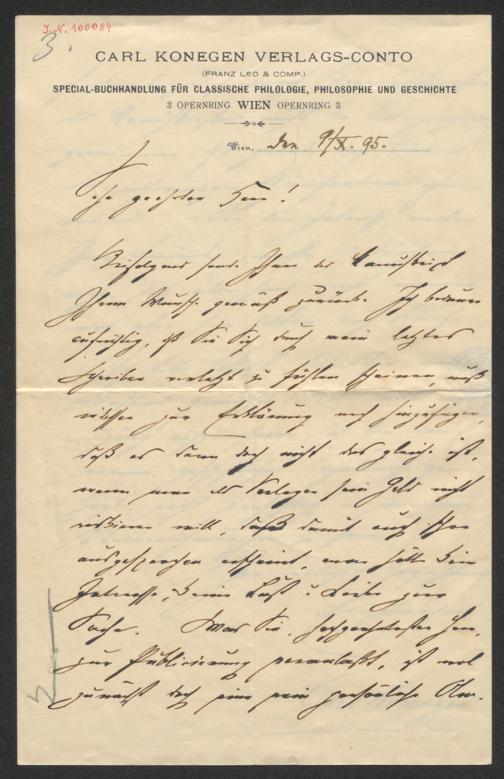 J.N. 100084
3.
CARL KONEGEN VERLAGS-CONTO
(FRANZ LEO & COMP.)
SPECIAL-BUCHHANDLUNG FÜR CLASSISCHE PHILOLOGIE, PHILOSOPHIE UND GESCHICHTE
3 OPERNRING WIEN OPERNRING 3
Wien, den 9/X. 95.
Sehr geehrter Herr!
Beifolgend sende Ihnen das Manuskript
Ihrem Wunsch gemäß zurück. Ich bedaure
aufrichtig, daß Sie sich durch mein letztes
Schreiben verletzt zu fühlen scheinen, muß
indessen zur Erklärung noch hinzufügen,
daß es denn doch nicht das gleiche ist,
wenn man als Verleger sein Geld nicht
riskieren will, daß damit auch schon
ausgesprochen erscheint, man hätte kein
Interesse, keine Lust u. Liebe zur
Sache. Was Sie, hochgeehrtester Herr,
zur Publizierung veranlaßt, ist wol
zunächst doch eine rein persönliche